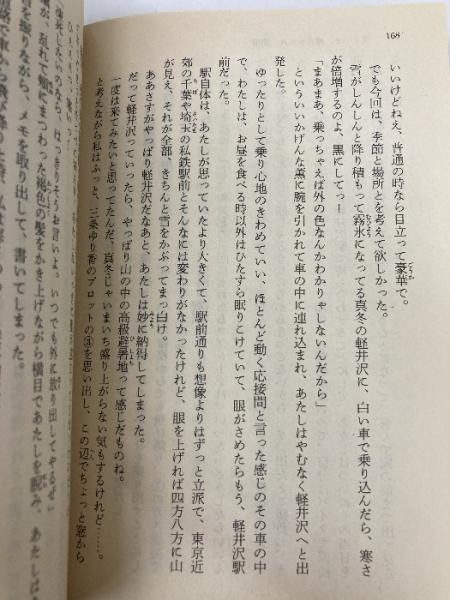 168
いいけどねえ、普通の時なら目立って豪華で。
でも今回は、季節と場所とを考えて欲しかった。
雪がしんしんと降り積もって霧氷になってる真冬の軽井沢に、白い車で乗り込んだら、寒さ
が倍増するのよ、黒にしてっ！
「まあまあ、乗っちゃえば外の色なんかわかりゃしないんだから」
といういいかげんな薫に腕を引かれて車の中に連れ込まれ、あたしはやむなく軽井沢へと出
発した。
ゆったりとして乗り心地のきわめていい、ほとんど動く応接間と言った感じのその車の中
で、わたしは、お昼を食べる時以外はひたすら眠りこけていて、眼がさめたらもう、軽井沢駅
前だった。
駅自体は、あたしが思っていたより大きくて、駅前通りも想像よりはずっと立派で、東京近
郊の千葉や埼玉の私鉄駅前とそんなには変わりがなかったけれど、眼を上げれば四方八方に山
が見え、それが全部、きちんと雪をかぶってまっ白け。
ああさすがやっぱり軽井沢だなあと、あたしは妙に納得してしまった。
だって軽井沢っていったら、やっぱり山の中の高級避暑地って感じだものね。
一度は来てみたいと思ってたんだ、真冬じゃいまいち盛り上がらない気もするけれど……。
と考えながら私はふっと、三条ゆり香のプロットの③を思い出し、この辺でちょっと窓から
いつでも外に放り出してやるぜ」
乱れて頬にまつわった褐色の髪をかき上げながら横目であたしを睨み、あたしは
を振りながら、メモを取り出して、書いてしまった。